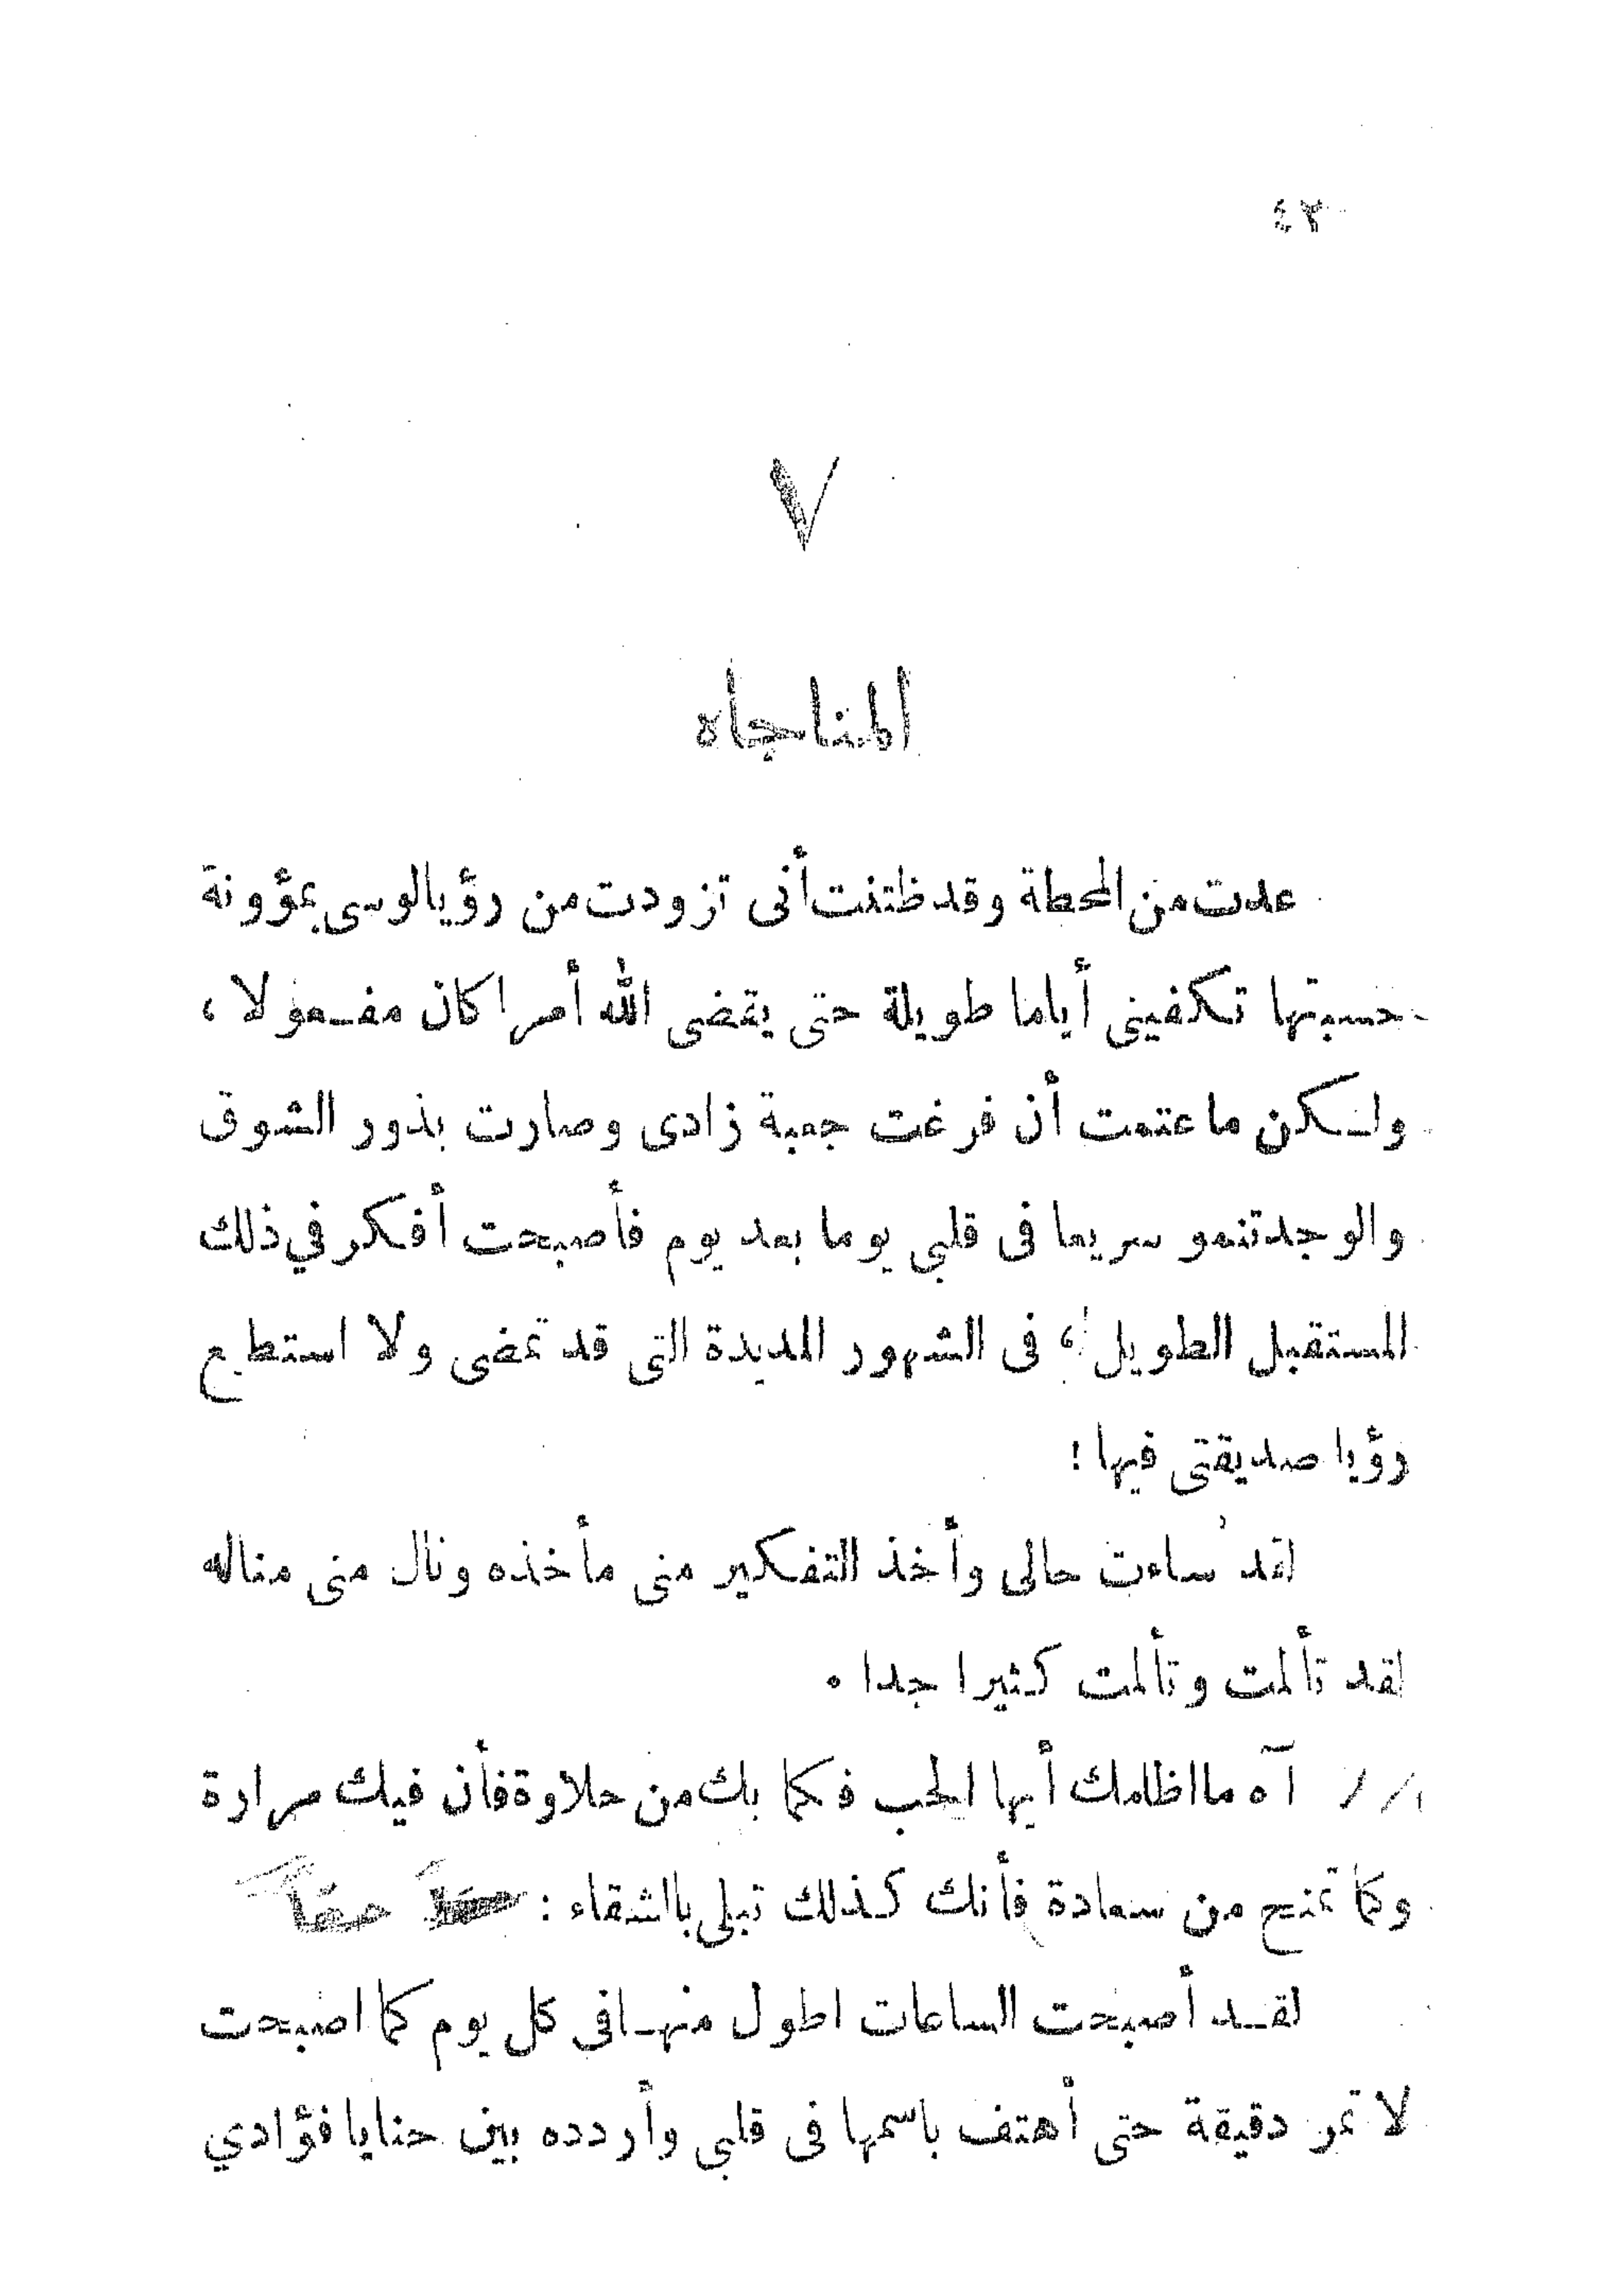 ٤٢
٧
المناجاه
عدت من المحطة وقد ظننت أنى تزودت من رؤيا لوسى بمؤونة
حسبتها تكفينى أياما طويلة حتى يقضى الله أمرا كان مفعولا ،
ولكن ما عتمت أن فرغت جعبة زادى وصارت بذور الشوق
والوجد تنمو سريعا فى قلبى يوما بعد يوم فأصبحت أفكر في ذلك
المستقبل الطويل ، فى الشهور المديدة التى قد تمضى ولا استطيع
رؤيا صديقتى فيها !
لقد ساءت حالى وأخذ التفكير منى مأخذه ونال منى مناله
لقد تألمت وتألمت كثيرا جدا .
آه ما اظلمك أيها الحب فكما بك من حلاوة فأن فيك مرارة
وكما تمنح من سعادة فأنك كذلك تبلى بالشقاء : حقاً
لقد أصبحت الساعات اطول منها فى كل يوم كما اصبحت
لا تمر دقيقة حتى أهتف باسمها فى قلبى وأردده بين حنايا فؤادي